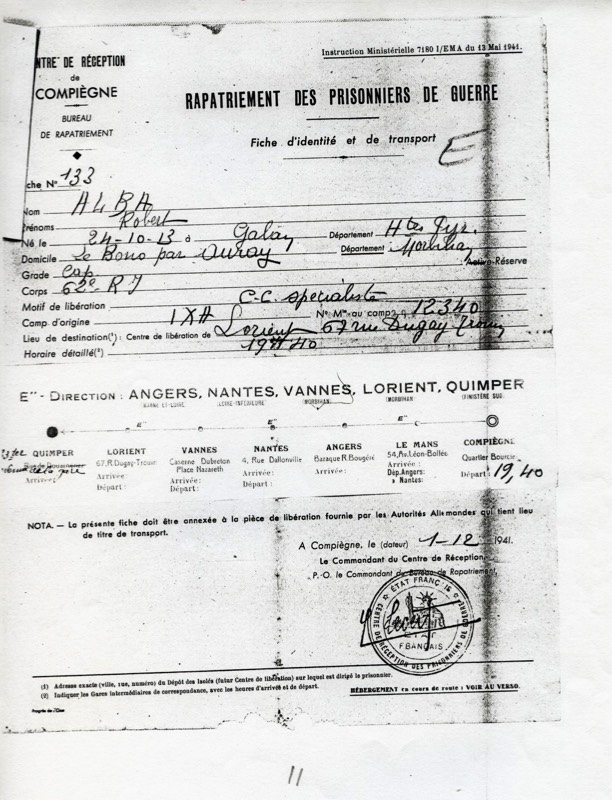 Instruction Ministérielle 7180 I/EMA du 13 Mai 1941.
NTRE DE RÉCEPTION
de
COMPIÈGNE
BUREAU
DE RAPATRIEMENT
RAPATRIEMENT DES PRISONNIERS DE GUERRE
Fiche d'identité et de transport
E
che Nº 133
Nom ALBA
Prénoms Robert
Né le 24-10-13 à Galan Département Htes Pyr.
Domicile Le Bono par Auray Département Morbihan
Grade Cap. Active-Réserve
Corps 62e R I
Motif de libération C.C. spécialiste
Camp d'origine IXA Nº Mle au camp 12340
Lieu de destination(1) : Centre de libération de Lorient 67 rue Dugay Trouin
Horaire détaillé(2) 19H40
E" - DIRECTION : ANGERS, NANTES, VANNES, LORIENT, QUIMPER
MAINE-ET-LOIRE LOIRE-INFÉRIEURE (MORBIHAN) (MORBIHAN (FINISTÈRE SUD)
E" E" E"
QUIMPER LORIENT VANNES NANTES ANGERS LE MANS COMPIÈGNE
67, R. Dugay-Trouin Caserne Dubreton 4, Rue Dallonville Baraque R. Bougère 54, Av. Léon-Bollée Quartier Bourcet
Place Nazareth
de la gare
Arrivée : Arrivée : Arrivée : Arrivée : Arrivée : Arrivée : Départ : 19,40
Départ : Départ : Départ : Départ : Dép. Angers :
» Nantes :
NOTA. — La présente fiche doit être annexée à la pièce de libération fournie par les Autorités Allemandes qui tient lieu
de titre de transport.
A Compiègne, le (dateur) 1-12 1941.
Le Commandant du Centre de Réception
P.-O. le Commandant du Bureau de Rapatriement,
ÉTAT FRANÇAIS
CENTRE DE RÉCEPTION DES PRISONNIERS DE GUERRE
ÉTAT
FRANÇAIS
(1) Adresse exacte (ville, rue, numéro) du Dépôt des Isolés (futur Centre de libération) sur lequel est dirigé le prisonnier.
(2) Indiquer les Gares intermédiaires de correspondance, avec les heures d'arrivée et de départ.
HÉBERGEMENT en cours de route : VOIR AU VERSO.
Progrès de l'Oise
11